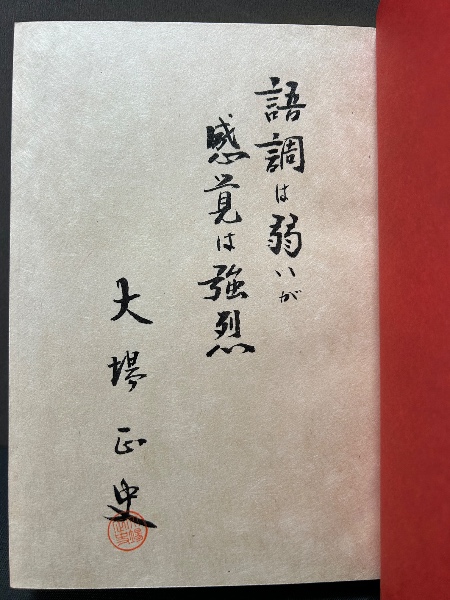 語調は弱いが
感覚は強烈
大場正史